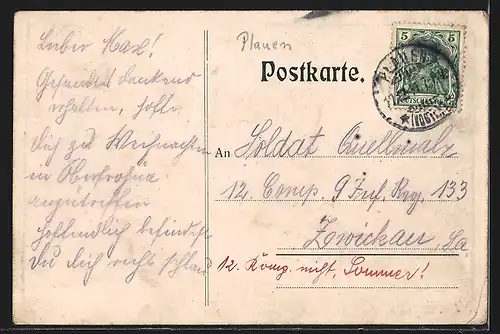 Plauen
Postkarte.
5 5
PLAUEN
* (VOGTL.)
Lieber Max!
Gesendet dankend
erhalten, hoffe
dich zu Weihnachten
in Oberfrohna
anzutreffen
hoffentlich befindest
Du dich recht schlau
An Soldat Quellmalz
12. Comp. 9 Inf. Reg. 133
Zwickau, Sa.
12. Komp. nicht, Sommer!